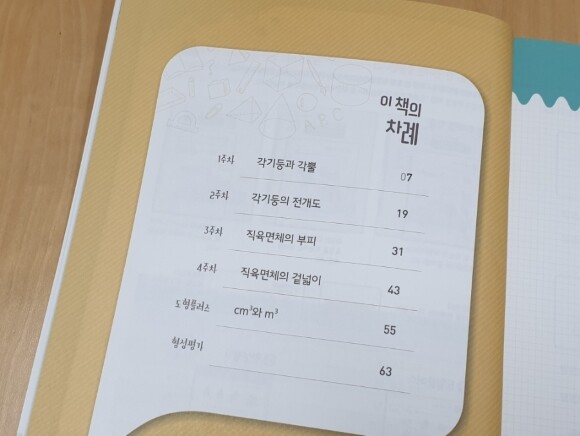 이 책의
차례
1주차 각기둥과 각뿔 07
2주차 각기둥의 전개도 19
3주차 직육면체의 부피 31
4주차 직육면체의 겉넓이 43
도형플러스 cm³와 m³ 55
형성평가 63